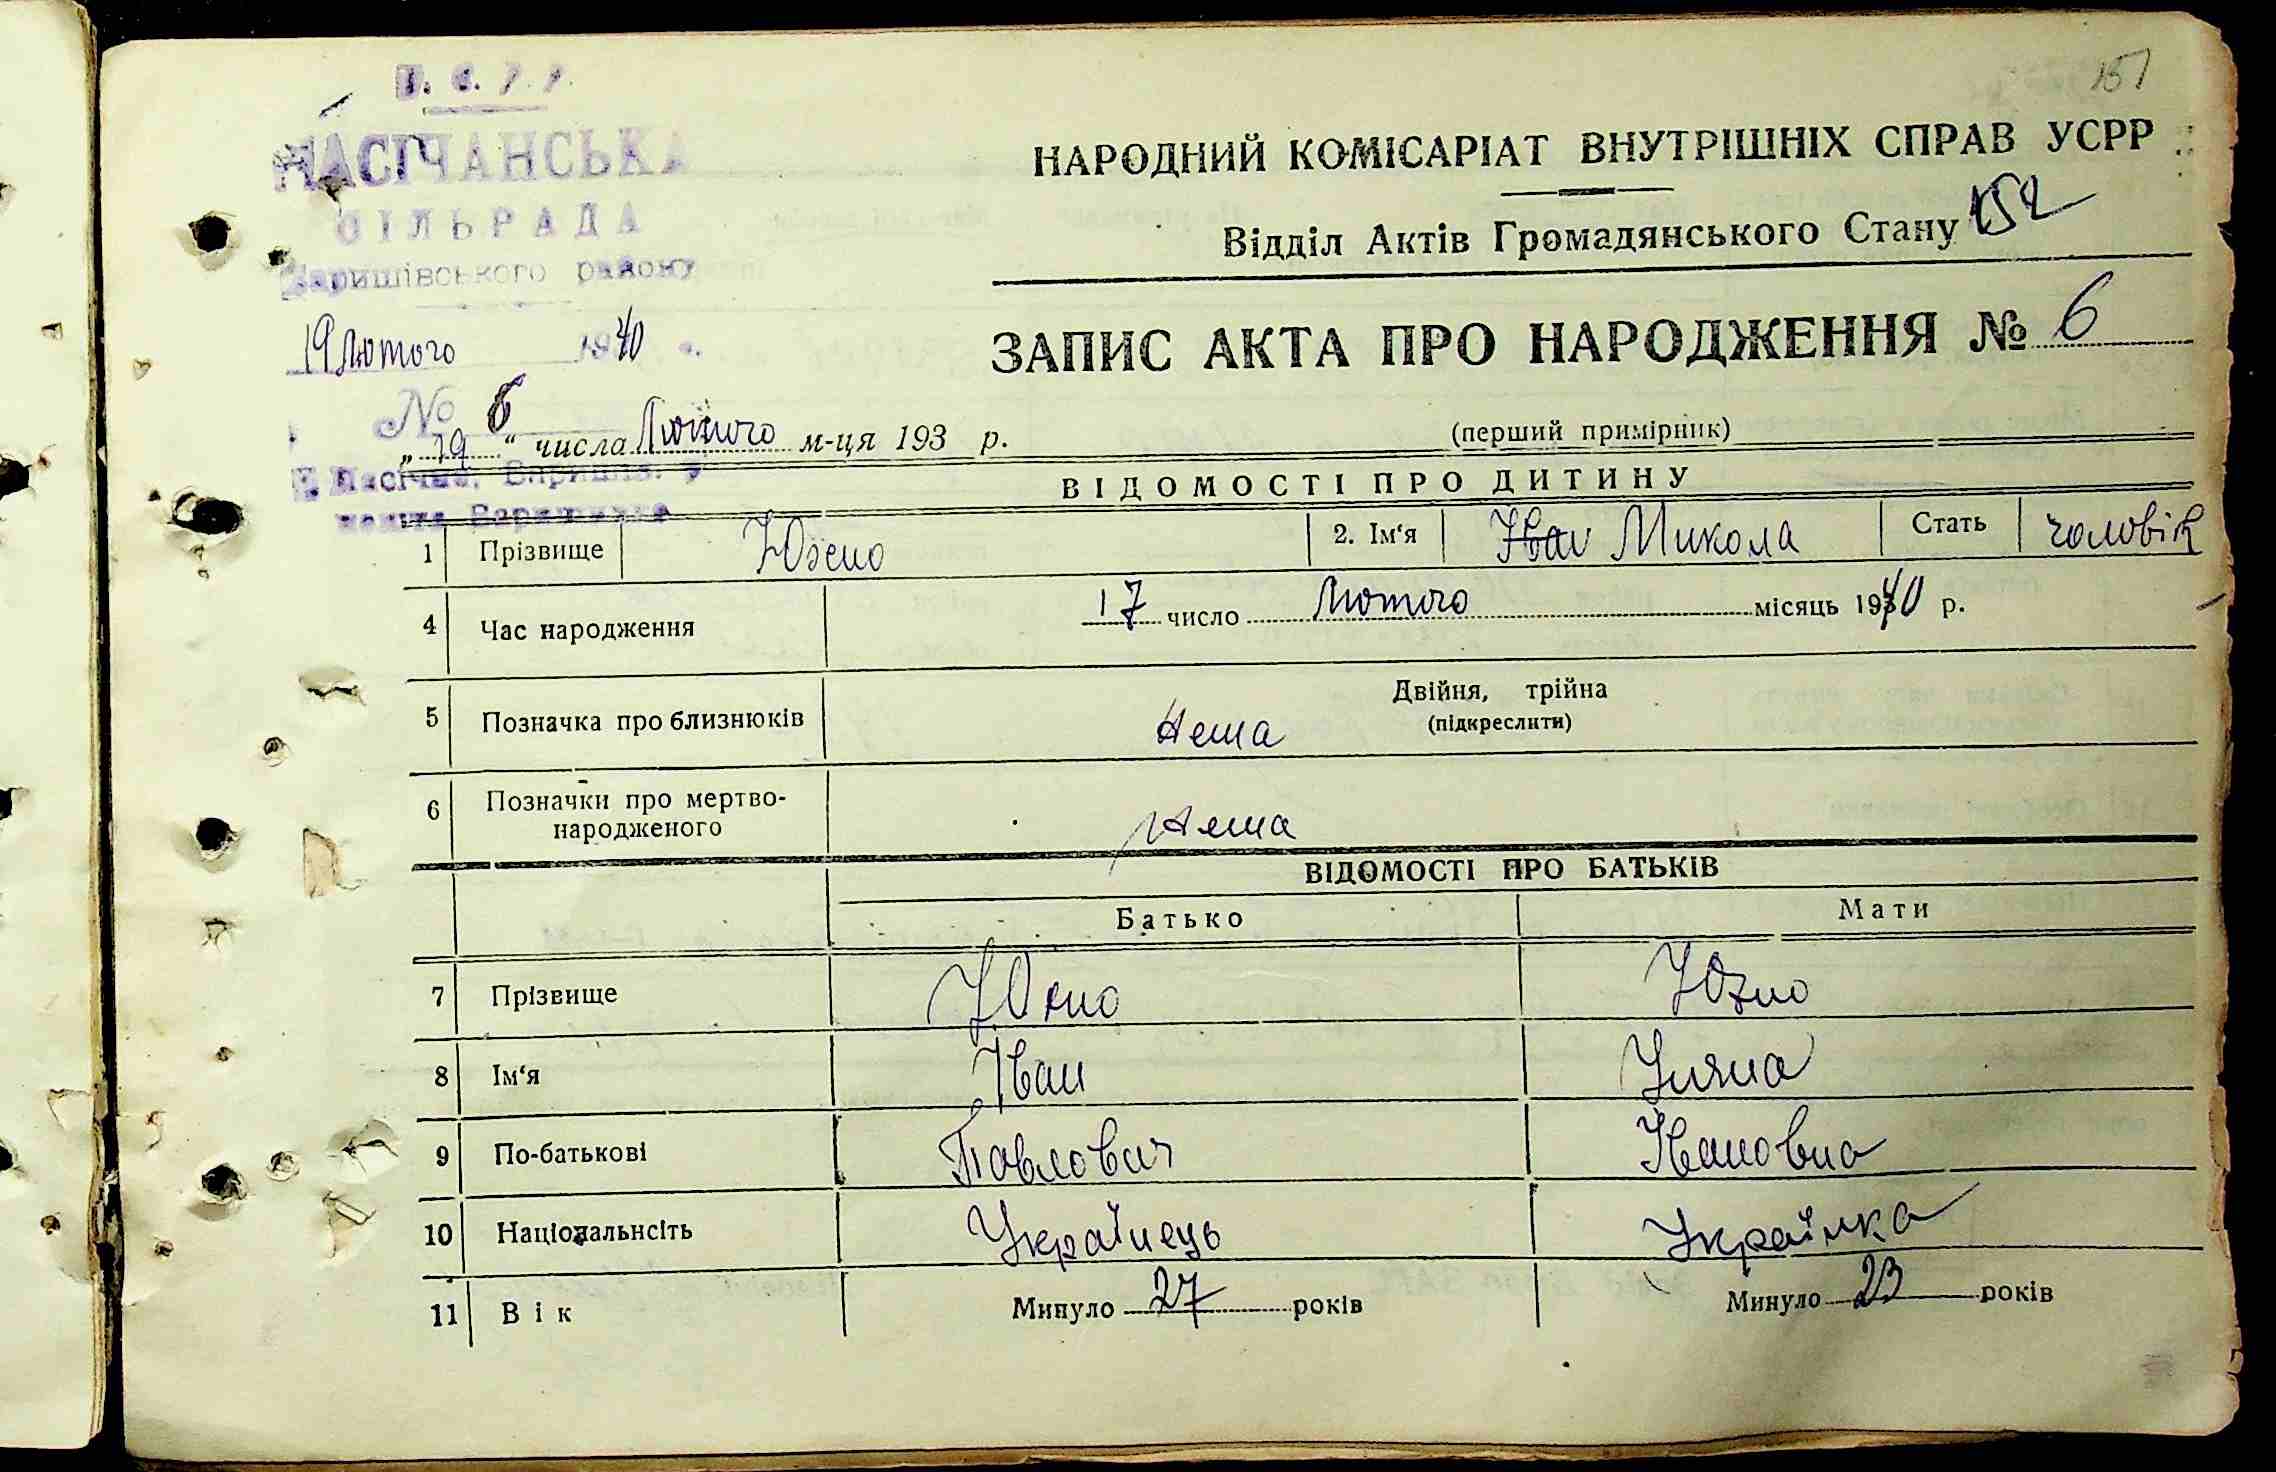 151
ПАСІЧАНСЬКА
СІЛЬРАДА
Баришівського району
19 Лютого 1940
№ 6
НАРОДНИЙ КОМІСАРІАТ ВНУТРІШНІХ СПРАВ УСРР
Відділ Актів Громадянського Стану 152
ЗАПИС АКТА ПРО НАРОДЖЕННЯ № 6
„19“ числа Лютого м-ця 193 р.
(перший примірник)
ВІДОМОСТІ ПРО ДИТИНУ
1 Прізвище 2. Ім'я Іван Микола Стать чоловік
4 Час народження 17 число Лютого місяць 1940 р.
5 Позначка про близнюків Нема Двійня, трійна
(підкреслити)
6 Позначки про мертво-
народженого Нема
ВІДОМОСТІ ПРО БАТЬКІВ
Батько Мати
7 Прізвище
8 Ім'я Іван Уляна
9 По-батькові Павлович Івановна
10 Національнсіть Українець Українка
11 Вік Минуло 27 років Минуло 23 років